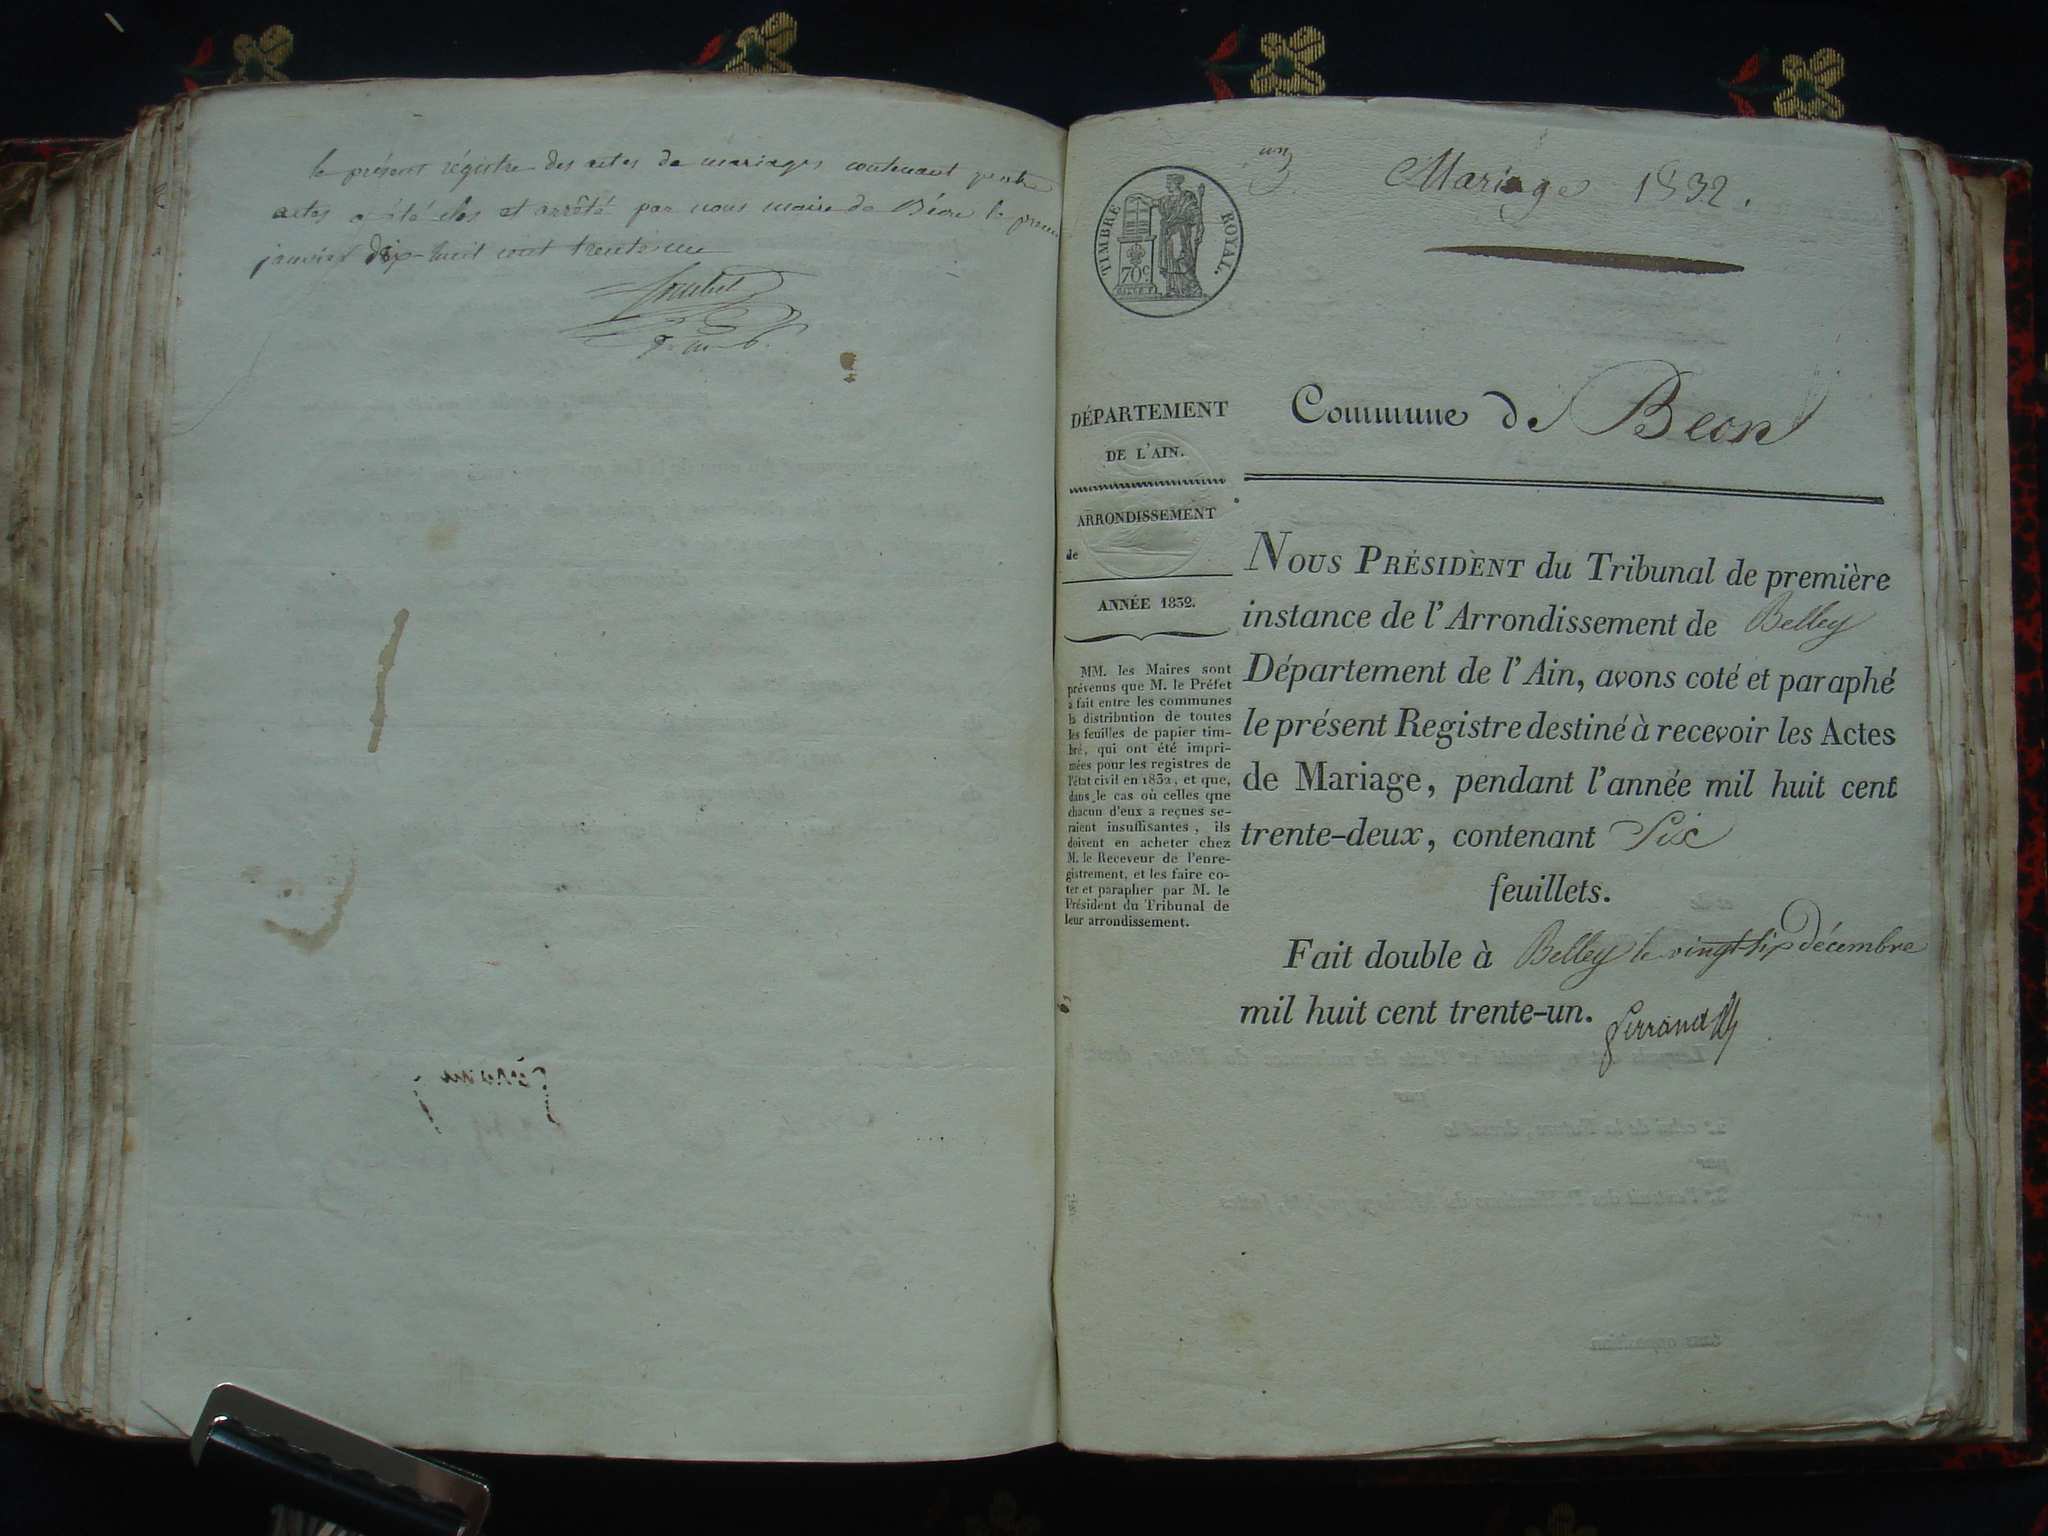 le présent régistre des actes de mariages contenant quatre
actes a été clos et arrêté par nous maire de Béon le premier
janvier dix-huit cent trente un
un
Mariage 1832.
TIMBRE ROYAL.
70 c
Commune de Beon
DÉPARTEMENT
DE L'AIN.
ARRONDISSEMENT
de
ANNÉE 1832.
MM. les Maires sont
prévenus que M. le Préfet
a fait entre les communes
la distribution de toutes
les feuilles de papier tim-
bré, qui ont été impri-
mées pour les registres de
l'état civil en 1832, et que,
dans le cas où celles que
chacun d'eux a reçues se-
raient insuffisantes, ils
doivent en acheter chez
M. le Receveur de l'enre-
gistrement, et les faire co-
ter et parapher par M. le
Président du Tribunal de
leur arrondissement.
NOUS PRÉSIDENT du Tribunal de première
instance de l'Arrondissement de Belley
Département de l'Ain, avons coté et paraphé
le présent Registre destiné à recevoir les Actes
de Mariage, pendant l'année mil huit cent
trente-deux, contenant Six
feuillets.
Fait double à Belley le vingt six décembre
mil huit cent trente-un.